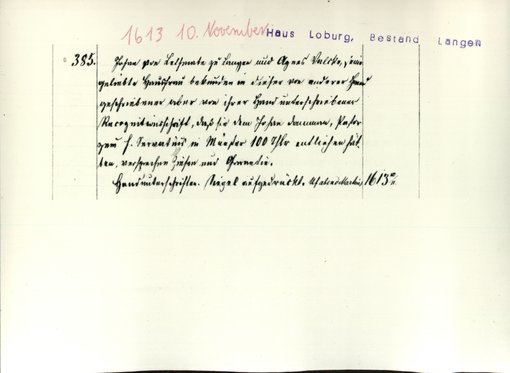 1613 10. November Haus Loburg, Bestand Langen
385. Johan von Letmate zu Langen und Agnes Valcke, seine
geliebte Hausfrau bekunden in dieser von anderer Hand
geschriebener aber von ihrer Hand unterschriebener
Recognitionsschrift, daß sie dem Johan Pastor
zu S. Servatius in Münster 100 Thlr entliehen hät-
ten, versprechen Zinsen und Garantie.
Handunterschriften. Siegel aufgedrückt. 1613